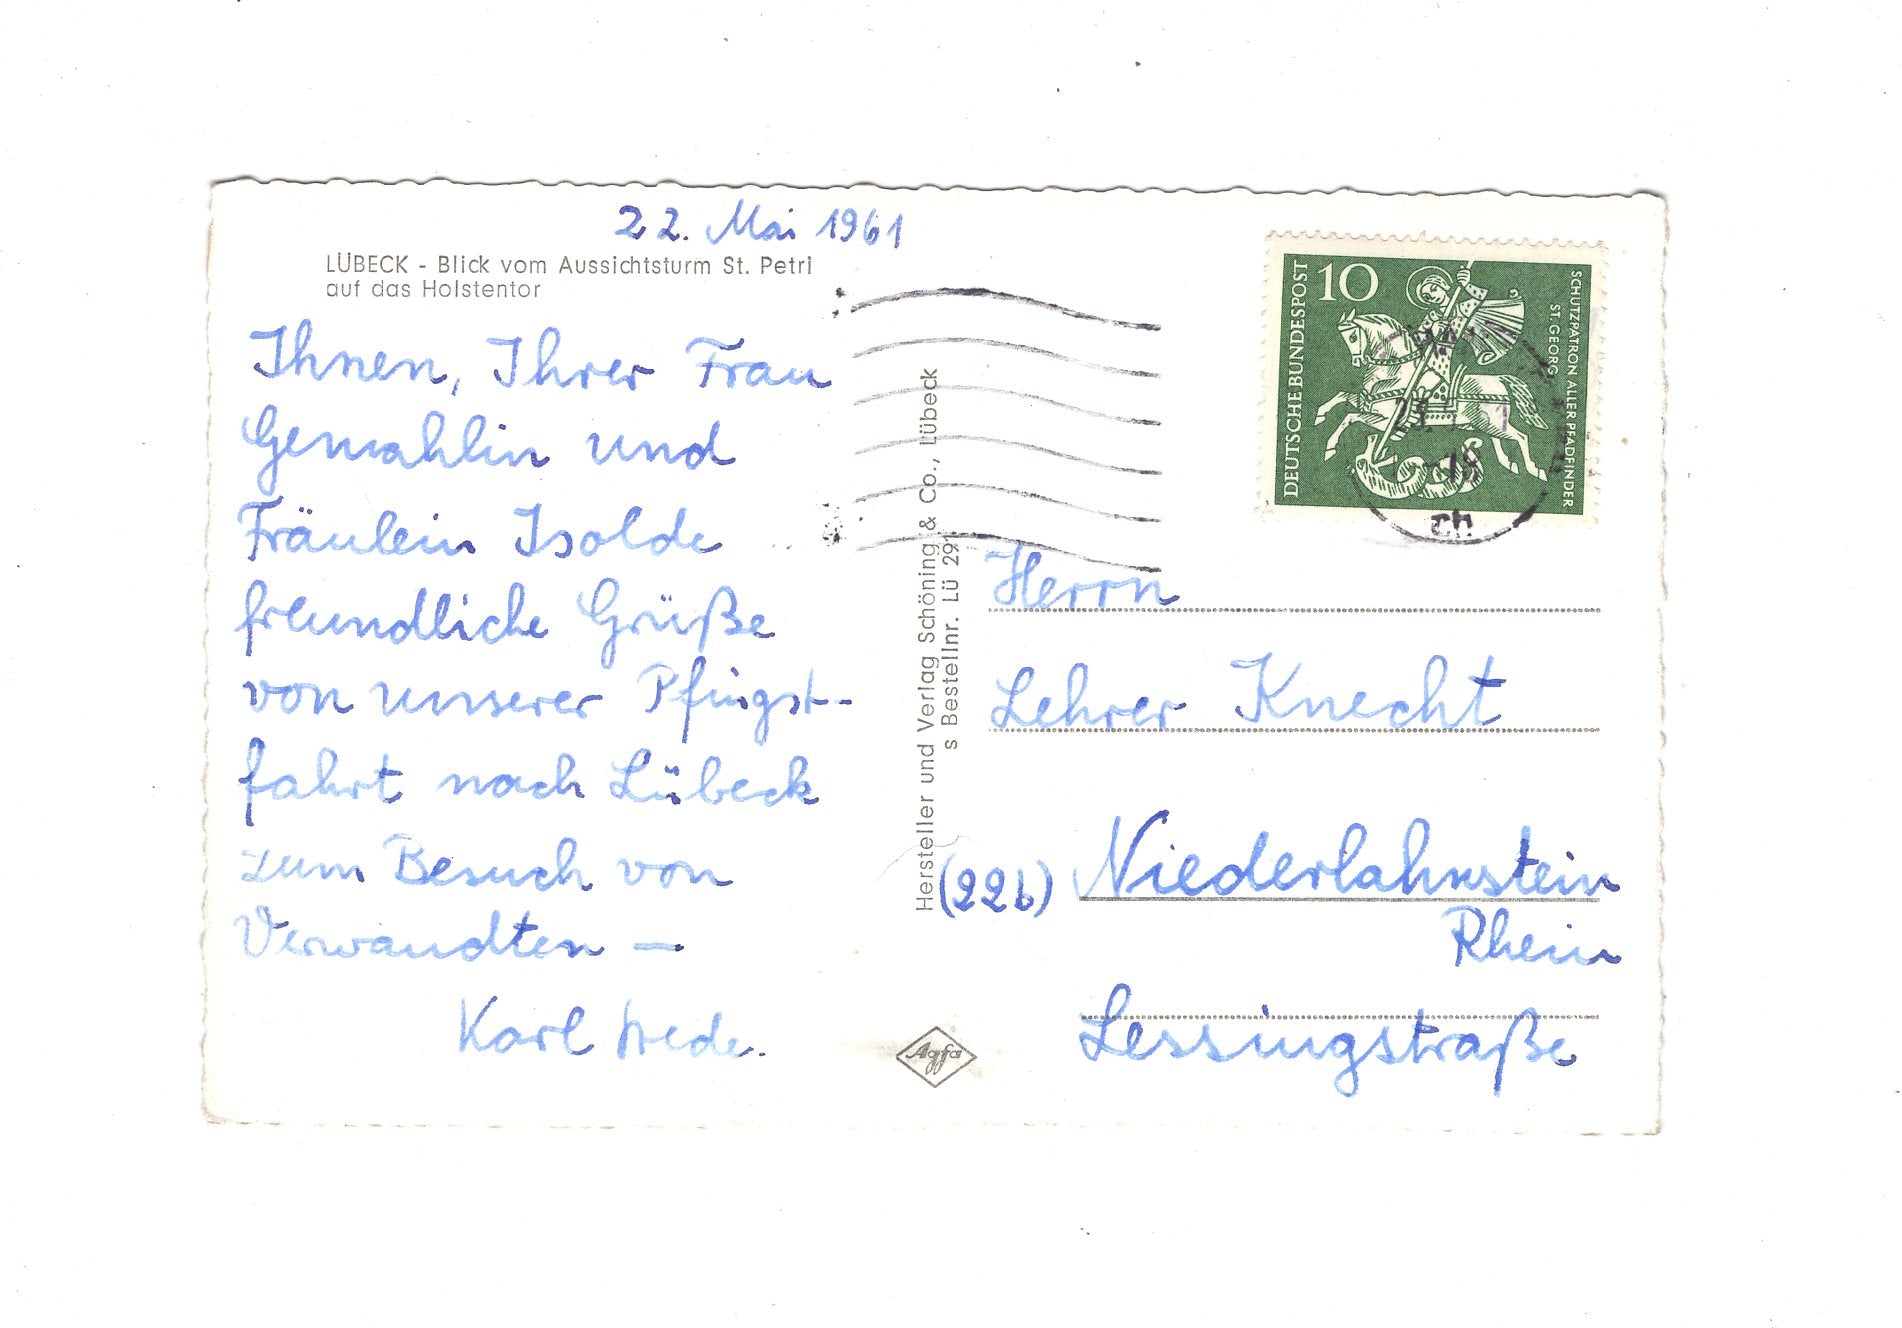 22. Mai 1961
LÜBECK - Blick vom Aussichtsturm St. Petri
auf das Holstentor
Ihnen, Ihrer Frau
Gemahlin und
Fräulein Isolde
freundliche Grüße
von unserer Pfingst-
fahrt nach Lübeck
zum Besuch von
Verwandten —
Karl
Hersteller und Verlag Schöning & Co., Lübeck
s Bestellnr. Lü 291
Agfa
DEUTSCHE BUNDESPOST
10
SCHUTZPATRON ALLER PFADFINDER
ST. GEORG
Herrn
Lehrer Knecht
(22b) Niederlahnstein
Rhein
Lessingstraße